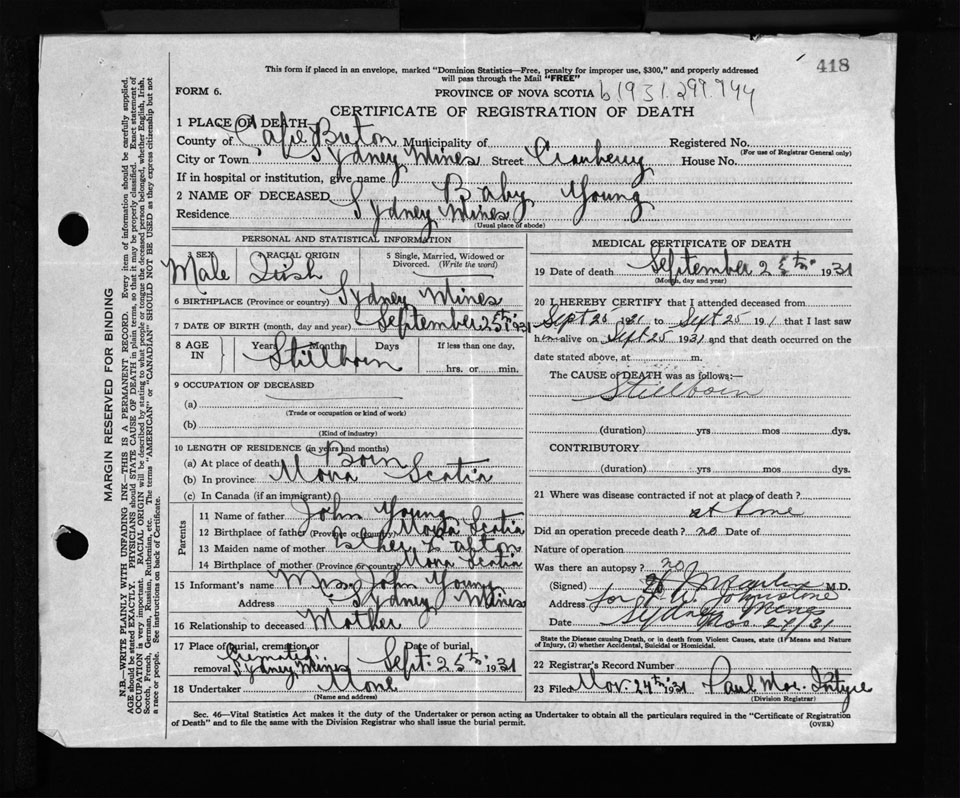 418
This form if placed in an envelope, marked "Dominion Statistics—Free, penalty for improper use, $300," and properly addressed
will pass through the Mail "FREE"
FORM 6.
PROVINCE OF NOVA SCOTIA b1931.297.944
CERTIFICATE OF REGISTRATION OF DEATH
1 PLACE OF DEATH—
County of Cape Breton Municipality of Registered No.
(For use of Registrar General only)
City or Town Sydney Mines Street Cranberry House No.
If in hospital or institution, give name
2 NAME OF DECEASED Baby Young
Residence Sydney Mines
(Usual place of abode)
PERSONAL AND STATISTICAL INFORMATION
3 SEX 4 RACIAL ORIGIN 5 Single, Married, Widowed or Divorced. (Write the word)
Male Irish
6 BIRTHPLACE (Province or country) Sydney Mines
7 DATE OF BIRTH (month, day and year) September 25th 1931
8 AGE IN Years Months Days If less than one day,
Stillborn hrs. or min.
9 OCCUPATION OF DECEASED
(a)
(Trade or occupation or kind of work)
(b)
(Kind of industry)
10 LENGTH OF RESIDENCE (in years and months)
(a) At place of death Born
(b) In province Nova Scotia
(c) In Canada (if an immigrant)
Parents
11 Name of father John Young
12 Birthplace of father (Province or country) Nova Scotia
13 Maiden name of mother Esther
14 Birthplace of mother (Province or country) Nova Scotia
15 Informant's name Mrs. John Young
Address Sydney Mines
16 Relationship to deceased Mother
17 Place of burial, cremation or removal Date of burial,
Sydney Mines Sept. 25th 1931
18 Undertaker None
(Name and address)
MEDICAL CERTIFICATE OF DEATH
19 Date of death September 25th 1931
(Month, day and year)
20 I HEREBY CERTIFY that I attended deceased from
Sept 25 1931 to Sept 25 191 that I last saw
him alive on Sept 25 1931 and that death occurred on the
date stated above, at m.
The CAUSE of DEATH was as follows:—
Stillborn
(duration) yrs mos dys.
CONTRIBUTORY
(duration) yrs mos dys.
21 Where was disease contracted if not at place of death?
at home
Did an operation precede death? no Date of
Nature of operation
Was there an autopsy? no
(Signed) M.D.
Address for Johnstone
Sydney Mines
Date Nov. 24/31
State the Disease causing Death, or in death from Violent Causes, state (1) Means and Nature
of Injury, (2) whether Accidental, Suicidal or Homicidal.
22 Registrar's Record Number
23 Filed Nov. 24th 1931 Paul
(Division Registrar)
Sec. 46—Vital Statistics Act makes it the duty of the Undertaker or person acting as Undertaker to obtain all the particulars required in the "Certificate of Registration
of Death" and to file the same with the Division Registrar who shall issue the burial permit.
(OVER)
MARGIN RESERVED FOR BINDING
N.B.—WRITE PLAINLY WITH UNFADING INK—THIS IS A PERMANENT RECORD. Every item of information should be carefully supplied.
AGE should be stated EXACTLY. PHYSICIANS should STATE CAUSE OF DEATH in plain terms, so that it may be properly classified. Exact statement of
OCCUPATION is very important. RACIAL ORIGIN will be described by stating to what people or tongue the deceased person belonged, whether English, Irish,
Scotch, French, German, Russian, Ruthenian, etc. The terms "AMERICAN" or "CANADIAN" SHOULD NOT BE USED as they express citizenship but not
a race or people. See instructions on back of Certificate.